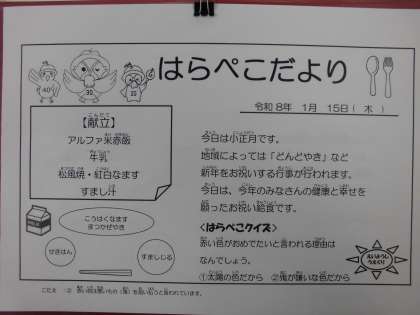 はらぺこだより
令和8年 1月 15日(木)
【献立】
アルファ米赤飯
牛乳
松風焼・紅白なます
すまし汁
今日は小正月です。
地域によっては「どんどやき」など
新年をお祝いする行事が行われます。
今日は、今年のみなさんの健康と幸せを
願ったお祝い給食です。
<はらぺこクイズ>
赤い色がおめでたいと言われる理由は
なんでしょう。
①太陽の色だから ②鬼が嫌いな色だから
こうはくなます
まつかぜやき
せきはん
すましじる
こたえ:②